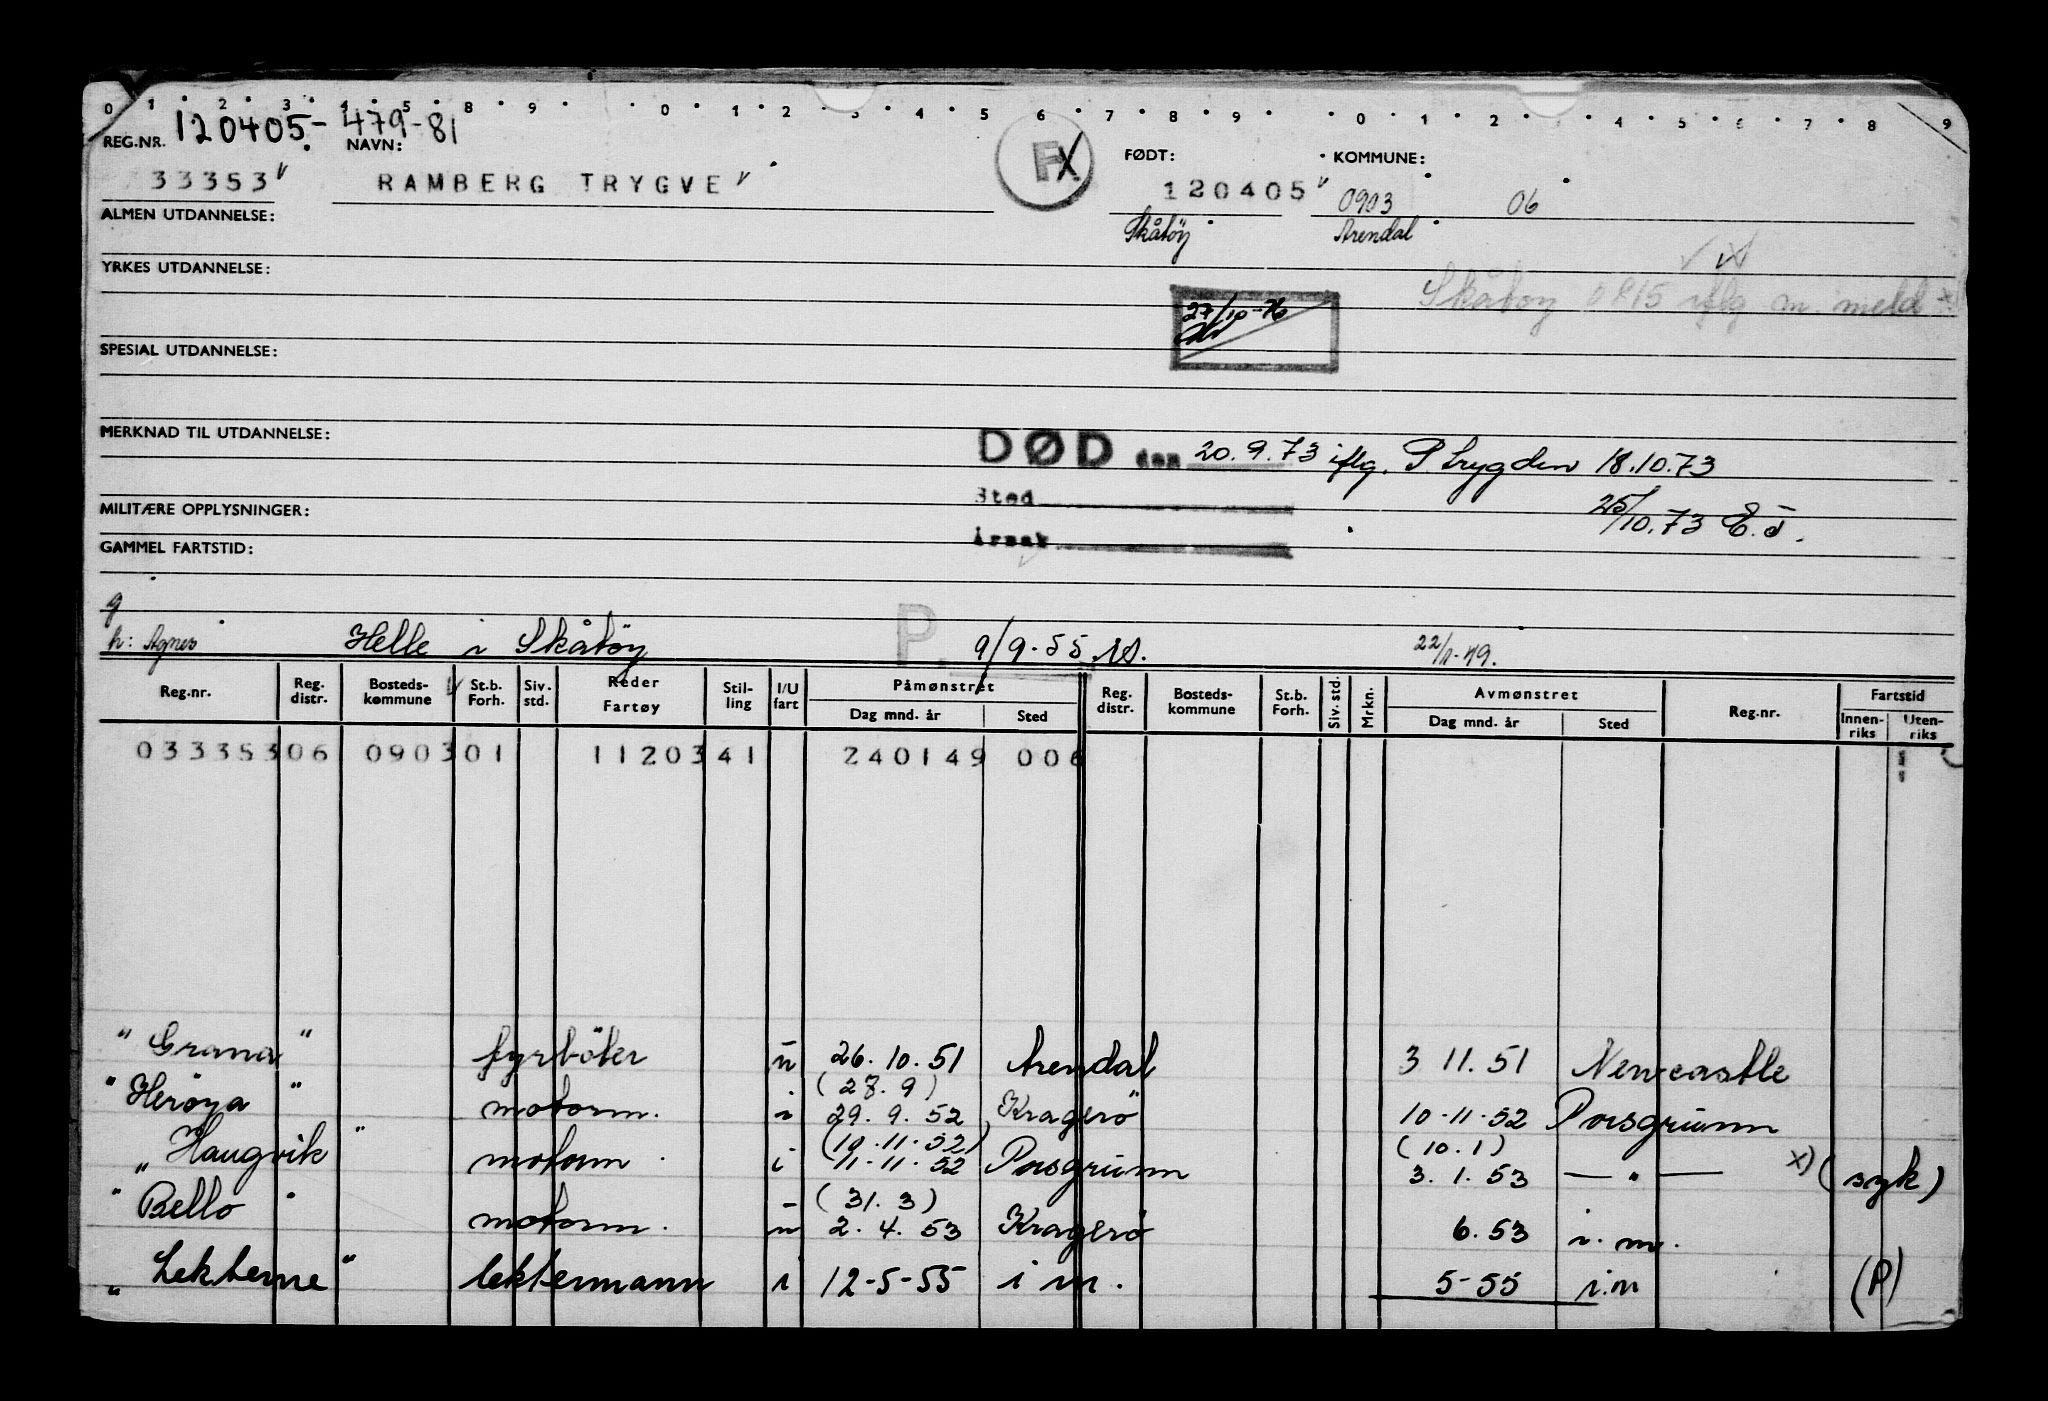 0 1 2 3 4 5 8 9 0 1 2 3 4 5 6 7 8 9 0 1 2 3 4 5 6 7 8 9
REG.NR. 120405.- 479-81
NAVN: FØDT: KOMMUNE:
33353 RAMBERG TRYGVE FX 120405 0903 06
ALMEN UTDANNELSE: Skåtöy Arendal
YRKES UTDANNELSE: Skåtøy 0815 iflg m. meld x)
27/10-76
SPESIAL UTDANNELSE:
MERKNAD TIL UTDANNELSE: DØD den 20.9.73 iflg. P trygden 18.10.73
Sted
MILITÆRE OPPLYSNINGER: 25/10.73 E.J.
Årsak
GAMMEL FARTSTID:
g
h: Agnes Helle i Skåtöy P. 9/9-55 22/1-49.
Reg.nr. Reg. distr. Bosteds-kommune St.b. Forh. Siv. std. Reder Fartøy Stil-ling I/U fart Påmønstret Dag mnd. år Sted Reg. distr. Bosteds-kommune St.b. Forh. Siv. std. Mrkn. Avmønstret Dag mnd. år Sted Reg.nr. Fartstid Innen-riks Uten-riks
033353 06 0903 01 1120341 240149 006
" Grana " fyrböter u 26.10.51 Arendal 3 11.51 Newcastle
(28.9)
" Heröya " motorm. i 29.9.52 Kragerö 10-11-52 Porsgrunn
(10.11.52) (10.1)
" Haugvik " motorm. i 11-11-52 Porsgrunn 3.1.53 — " — x) (syk)
(31.3)
" Bello " motorm. u 2.4.53 Kragerö 6.53 i.m.
" Lekterne " lektermann i 12-5-55 i m. 5-55 i.m (P)